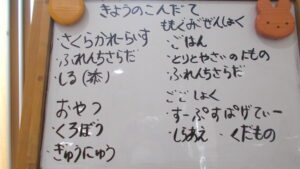 きょうのこんだて
さくらかれーらいす
ふれんちさらだ
しる(添)
おやつ
くろぼう
ぎゅうにゅう
ももぐみぜんしょく
ごはん
とりとやさいのにもの
ふれんちさらだ
ごごしょく
すーぷすぱげてぃー
しらあえ くだもの